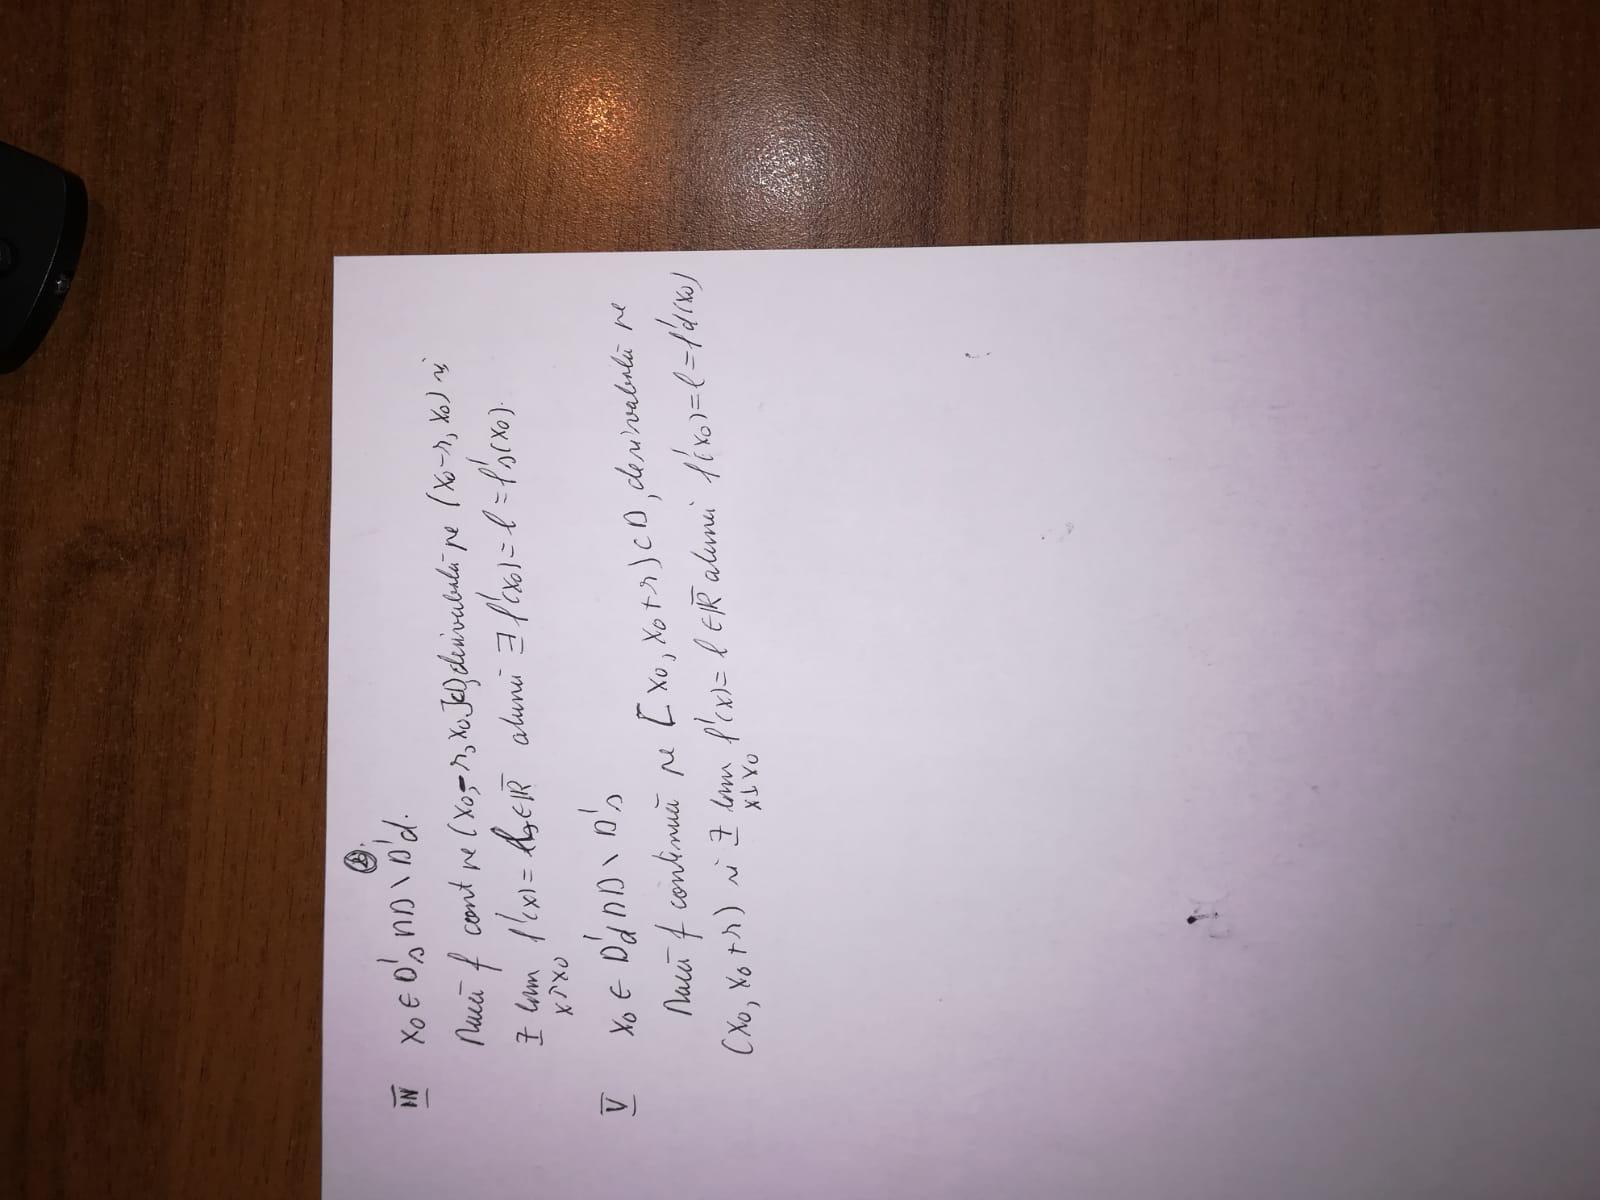 ②.
IV x₀ ∈ D's ∩ D \ D'd.
Dacă f cont pe (x₀-r, x₀]⊂D, derivabilă pe (x₀-r, x₀) și
∃ lim f'(x) = ls ∈ R̅ atunci ∃ f'(x₀) = l = f's(x₀).
x↗x₀
V x₀ ∈ D'd ∩ D \ D's
Dacă f continuă pe [x₀, x₀+r) ⊂ D, derivabilă pe
(x₀, x₀+r) și ∃ lim f'(x) = l ∈ R̅ atunci f'(x₀) = l = f'd(x₀)
x↓x₀